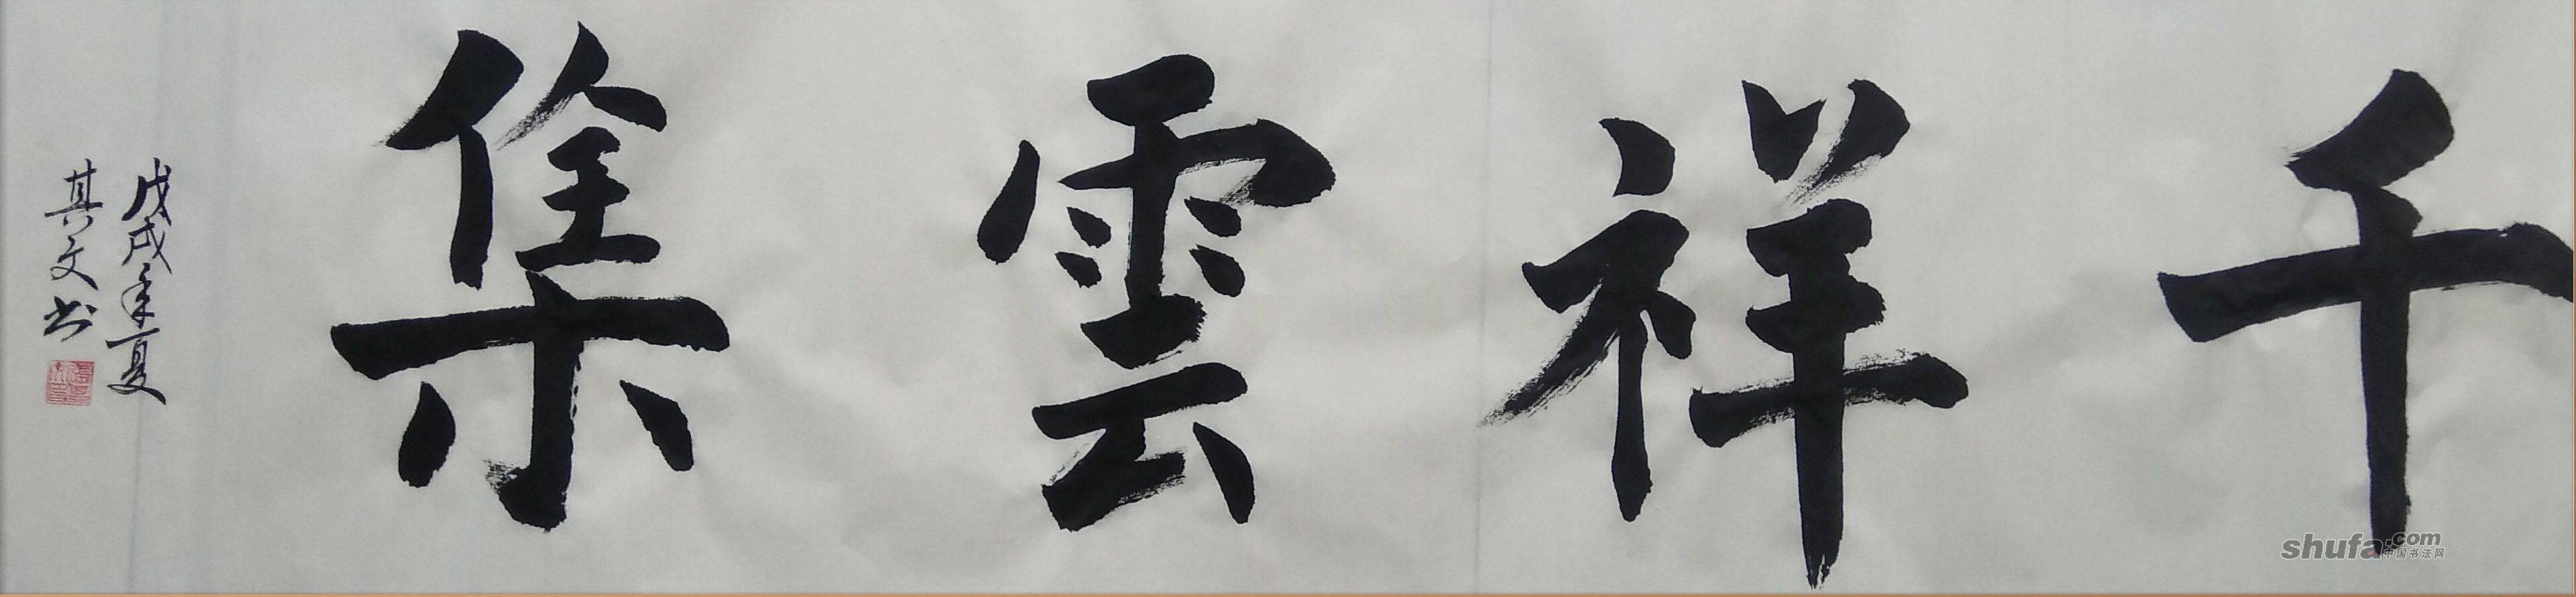 千祥雲集
戊戌年夏
其文书
shufa.com
中国书法网